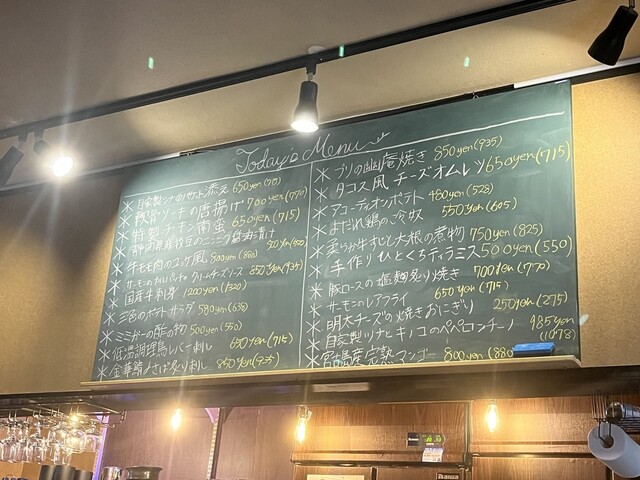 Today's Menu
* 自家製ツナのバケット添え 650yen(715)
* 軟骨ソーキの唐揚げ 700yen(770)
* 特製チキン南蛮 650yen(715)
* 静岡県産枝豆のニンニク醤油漬け 500yen(550)
* 牛モモ肉のユッケ風 800yen(880)
* サーモンのカルパッチョ クリームチーズソース 850yen(935)
* 国産牛刺身 1200yen(1320)
* 三色のポテトサラダ 580yen(638)
* ミミガーの酢の物 500yen(550)
* 低温調理鳥レバー刺し 650yen(715)
* 金華鯖〆さば炙り刺し 850yen(935)
* ブリの幽庵焼き 850yen(935)
* タコス風チーズオムレツ 650yen(715)
* アコーディオンポテト 480yen(528)
* よだれ鶏の冷奴 550yen(605)
* 柔らか牛すじと大根の煮物 750yen(825)
* 手作りひとくちティラミス 500yen(550)
* 豚ロースの塩麹炙り焼き 700yen(770)
* サーモンのレアフライ 650yen(715)
* 明太チーズの焼きおにぎり 250yen(275)
* 自家製ツナとキノコのペペロンチーノ 985yen(1078)
* 宮古島産完熟マンゴー 800yen(880)